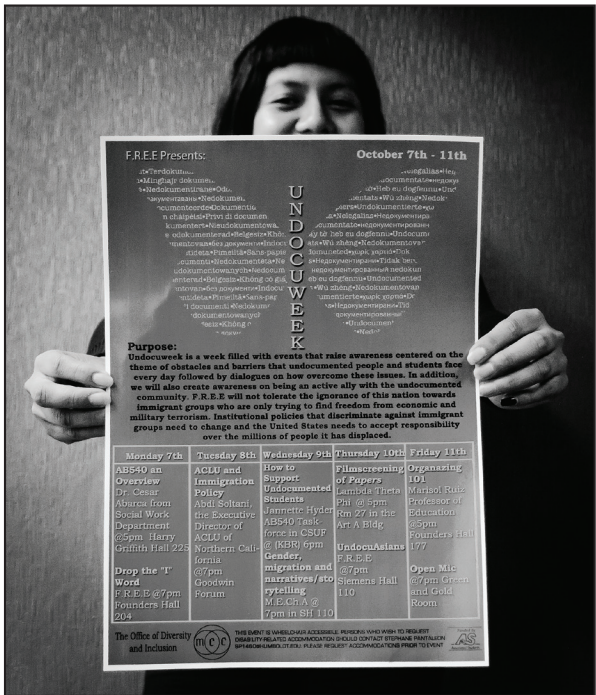 F.R.E.E Presents:
October 7th - 11th
UNDOCUWEEK
Purpose:
Undocuweek is a week filled with events that raise awareness centered on the
theme of obstacles and barriers that undocumented people and students face
every day followed by dialogues on how overcome these issues. In addition,
we will also create awareness on being an active ally with the undocumented
community. F.R.E.E will not tolerate the ignorance of this nation towards
immigrant groups who are only trying to find freedom from economic and
military terrorism. Institutional policies that discriminate against immigrant
groups need to change and the United States needs to accept responsibility
over the millions of people it has displaced.
Monday 7th
AB540 an
Overview
Dr. Cesar
Abarca from
Social Work
Department
@5pm Harry
Griffith Hall 225
Drop the "I"
Word
F.R.E.E @7pm
Founders Hall
204
Tuesday 8th
ACLU and
Immigration
Policy
Abdi Soltani,
the Executive
Director of
ACLU of
Northern Cali-
fornia
@7pm
Goodwin
Forum
Wednesday 9th
How to
Support
Undocumented
Students
Jannette Hyder
AB540 Task-
force in CSUF
@ (KBR) 6pm
Gender,
migration and
narratives/sto
rytelling
M.E.Ch.A @
7pm in SH 110
Thursday 10th
Filmscreening
of Papers
Lambda Theta
Phi @ 5pm
Rm 27 in the
Art A Bldg
UndocuAsians
F.R.E.E
@7pm
Siemens Hall
110
Friday 11th
Organazing
101
Marisol Ruiz
Professor of
Education
@5pm
Founders Hall
177
Open Mic
@7pm Green
and Gold
Room
The Office of Diversity
and Inclusion
mcc
THIS EVENT IS WHEELCHAIR ACCESSIBLE. PERSONS WHO WISH TO REQUEST
DISABILITY-RELATED ACCOMMODATION SHOULD CONTACT STEPHANE PANTALEON
PLEASE REQUEST ACCOMMODATIONS PRIOR TO EVENT
AS